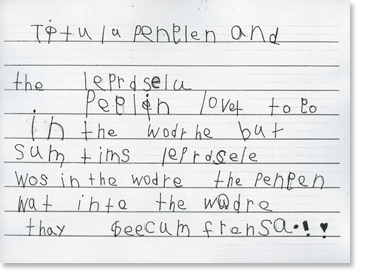 Titula penelen and
the leprdselu
Peplin lovet to eo
in the wodrhe but
sum tims leprdsele
wos in the wodre the penpen
wat inte the wadre
thay beecum frensa.!♥